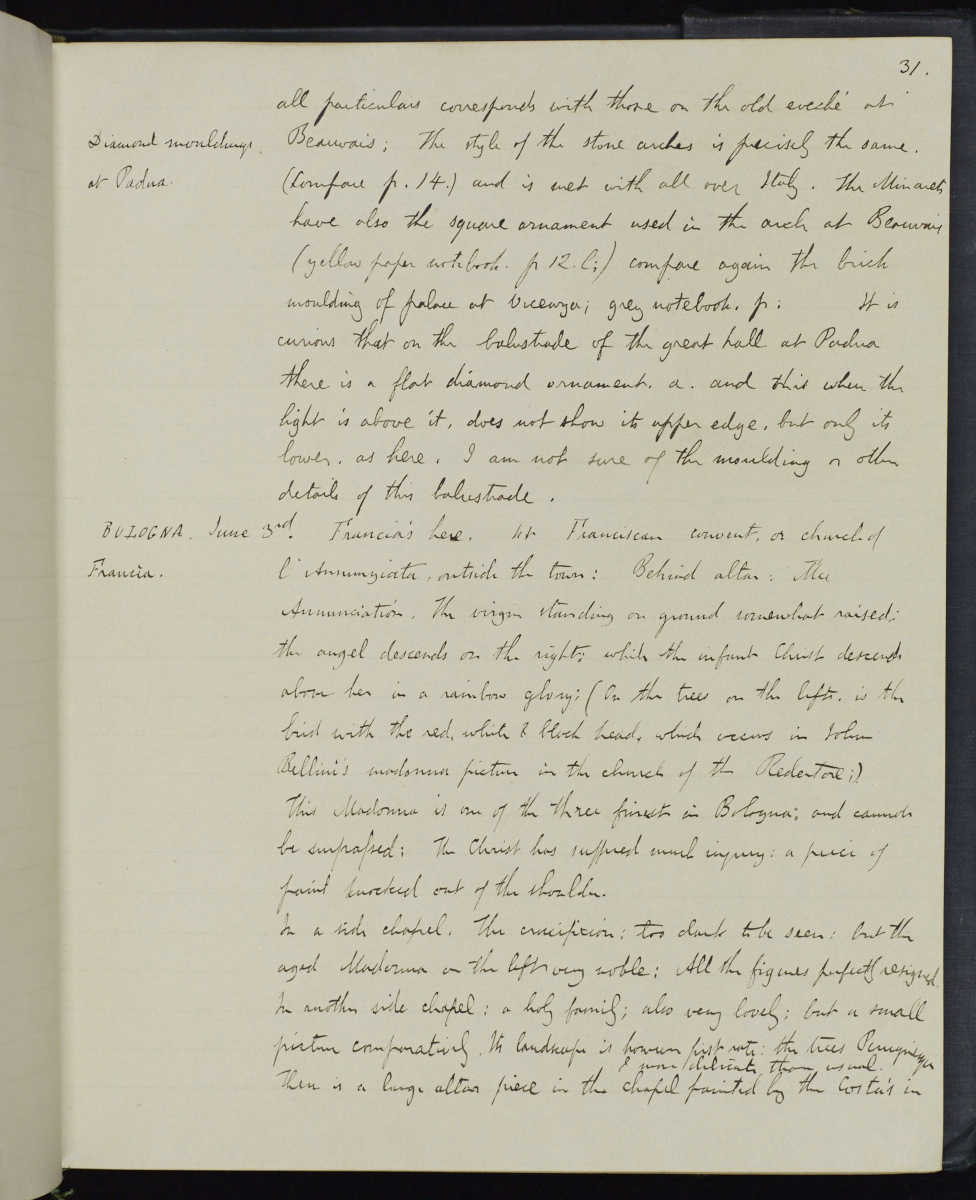 31.
all particulars corresponds with those on the old eveché at
Diamond mouldings
at Padua.
Beauvais; The style of the stone arches is precisely the same.
(Compare p. 14.) and is met with all over Italy. The Minarets
have also the square ornament used in the arch at Beauvais
(yellow paper notebook. p 12. l;) compare again the brick
moulding of palace at Vicenza; grey notebook. p: It is
curious that on the balustrade of the great hall at Padua
there is a flat diamond ornament. a. and this when the
light is above it, does not show its upper edge, but only its
lower, as here. I am not sure of the moulding or other
details of this balustrade.
BOLOGNA. June 3rd. Francia's here. At Franciscan convent, or church of
Francia.
l'Annunziata, outside the town: Behind altar: The
Annunciation. The virgin standing on ground somewhat raised;
the angel descends on the right; while the infant Christ descends
above her in a rainbow glory; (On the trees on the left, is the
bird with the red, white & black head, which occurs in John
Bellini's madonna picture in the church of the Redentore;)
This Madonna is one of the three finest in Bologna; and cannot
be surpassed: The Christ has suffered much injury: a piece of
paint knocked out of the shoulder.
In a side chapel. The crucifixion: too dark to be seen: but the
aged Madonna on the left very noble; All the figures perfectly resigned.
In another side chapel: a holy family; also very lovely; but a small
picture comparatively. Its landscape is however first rate: the trees
& more delicate than usual.
There is a large altar piece in the chapel painted by the Costa's in